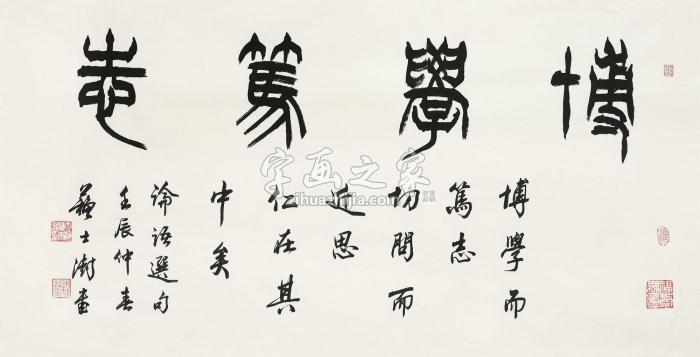 博學篤志
博學而
篤志
切問而
近思
仁在其
中矣
論語選句
壬辰仲春
蘇士澍書
字画之家
zihuazhijia.com